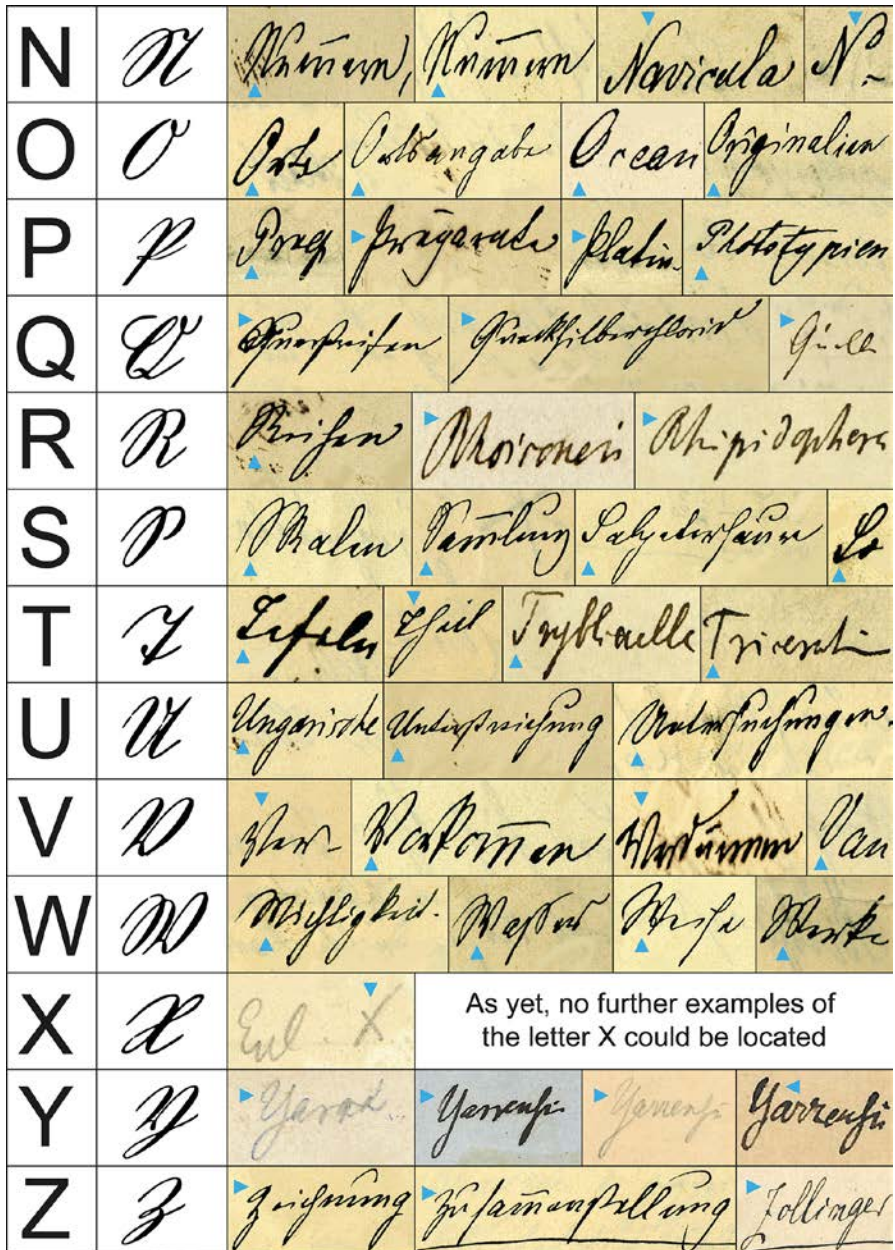 N N Nummern, Nummern Navicula No
O O Orte Ortsangabe Ocean Originalien
P P Präparate Platin- Phototypien
Q Q Querstreifen Quecksilberchlorid Quelle
R R Reihen Rhoiconeis Rhipidophora
S S Skalen Sammlung Salpetersäure So
T T Tafeln Theil Tryblionella Tricerati
U U Ungarische Unterstreichung Untersuchungen.
V V Ver- Vorkommen Verdünnen Van
W W Wichtigkeit. Wasser Weise Werke
X X Eul. X As yet, no further examples of
the letter X could be located
Y Y Yarrensis Yarrensis Yarrensis
Z Z Zeichnung Zusammenstellung Zollinger